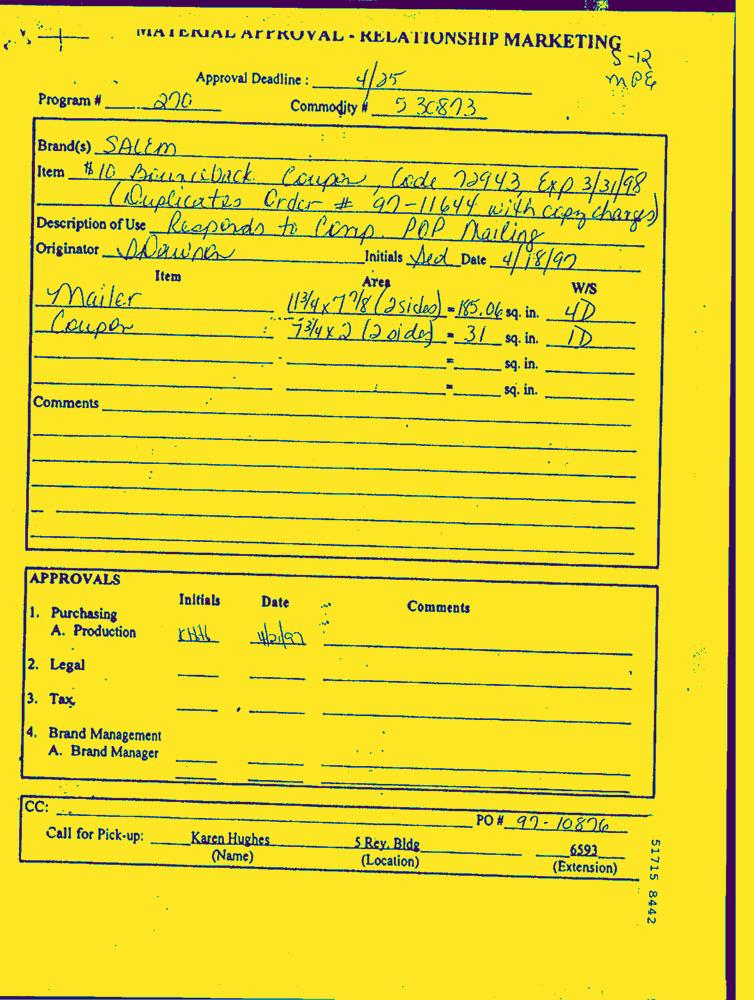 MATERIAL APPROVAL - RELATIONSHIP MARKETING
5-12
Approval Deadline : 4/25
Program # 270 Commodity # 530873
Brand(s) SALEM
Item $10 Bounceback Coupon, Code 72943, Exp 3/31/98
(Duplicates Order # 97-11644 with copy changes)
Description of Use Responds to Comp. POP Mailing
Originator Initials Date 4/18/97
Item Area W/S
Mailer 11 3/4 x 7 7/8 (2 sides) = 185.06 sq. in. 4D
Coupon 7 3/4 x 2 (2 sides) = 31 sq. in. 1D
= sq. in.
= sq. in.
Comments
APPROVALS
Initials Date Comments
1. Purchasing
A. Production KHH 4/21/97
2. Legal
3. Tax
4. Brand Management
A. Brand Manager
CC:
PO # 97-10876
Call for Pick-up: Karen Hughes 5 Rey. Bldg 6593
(Name) (Location) (Extension)
51715 8442